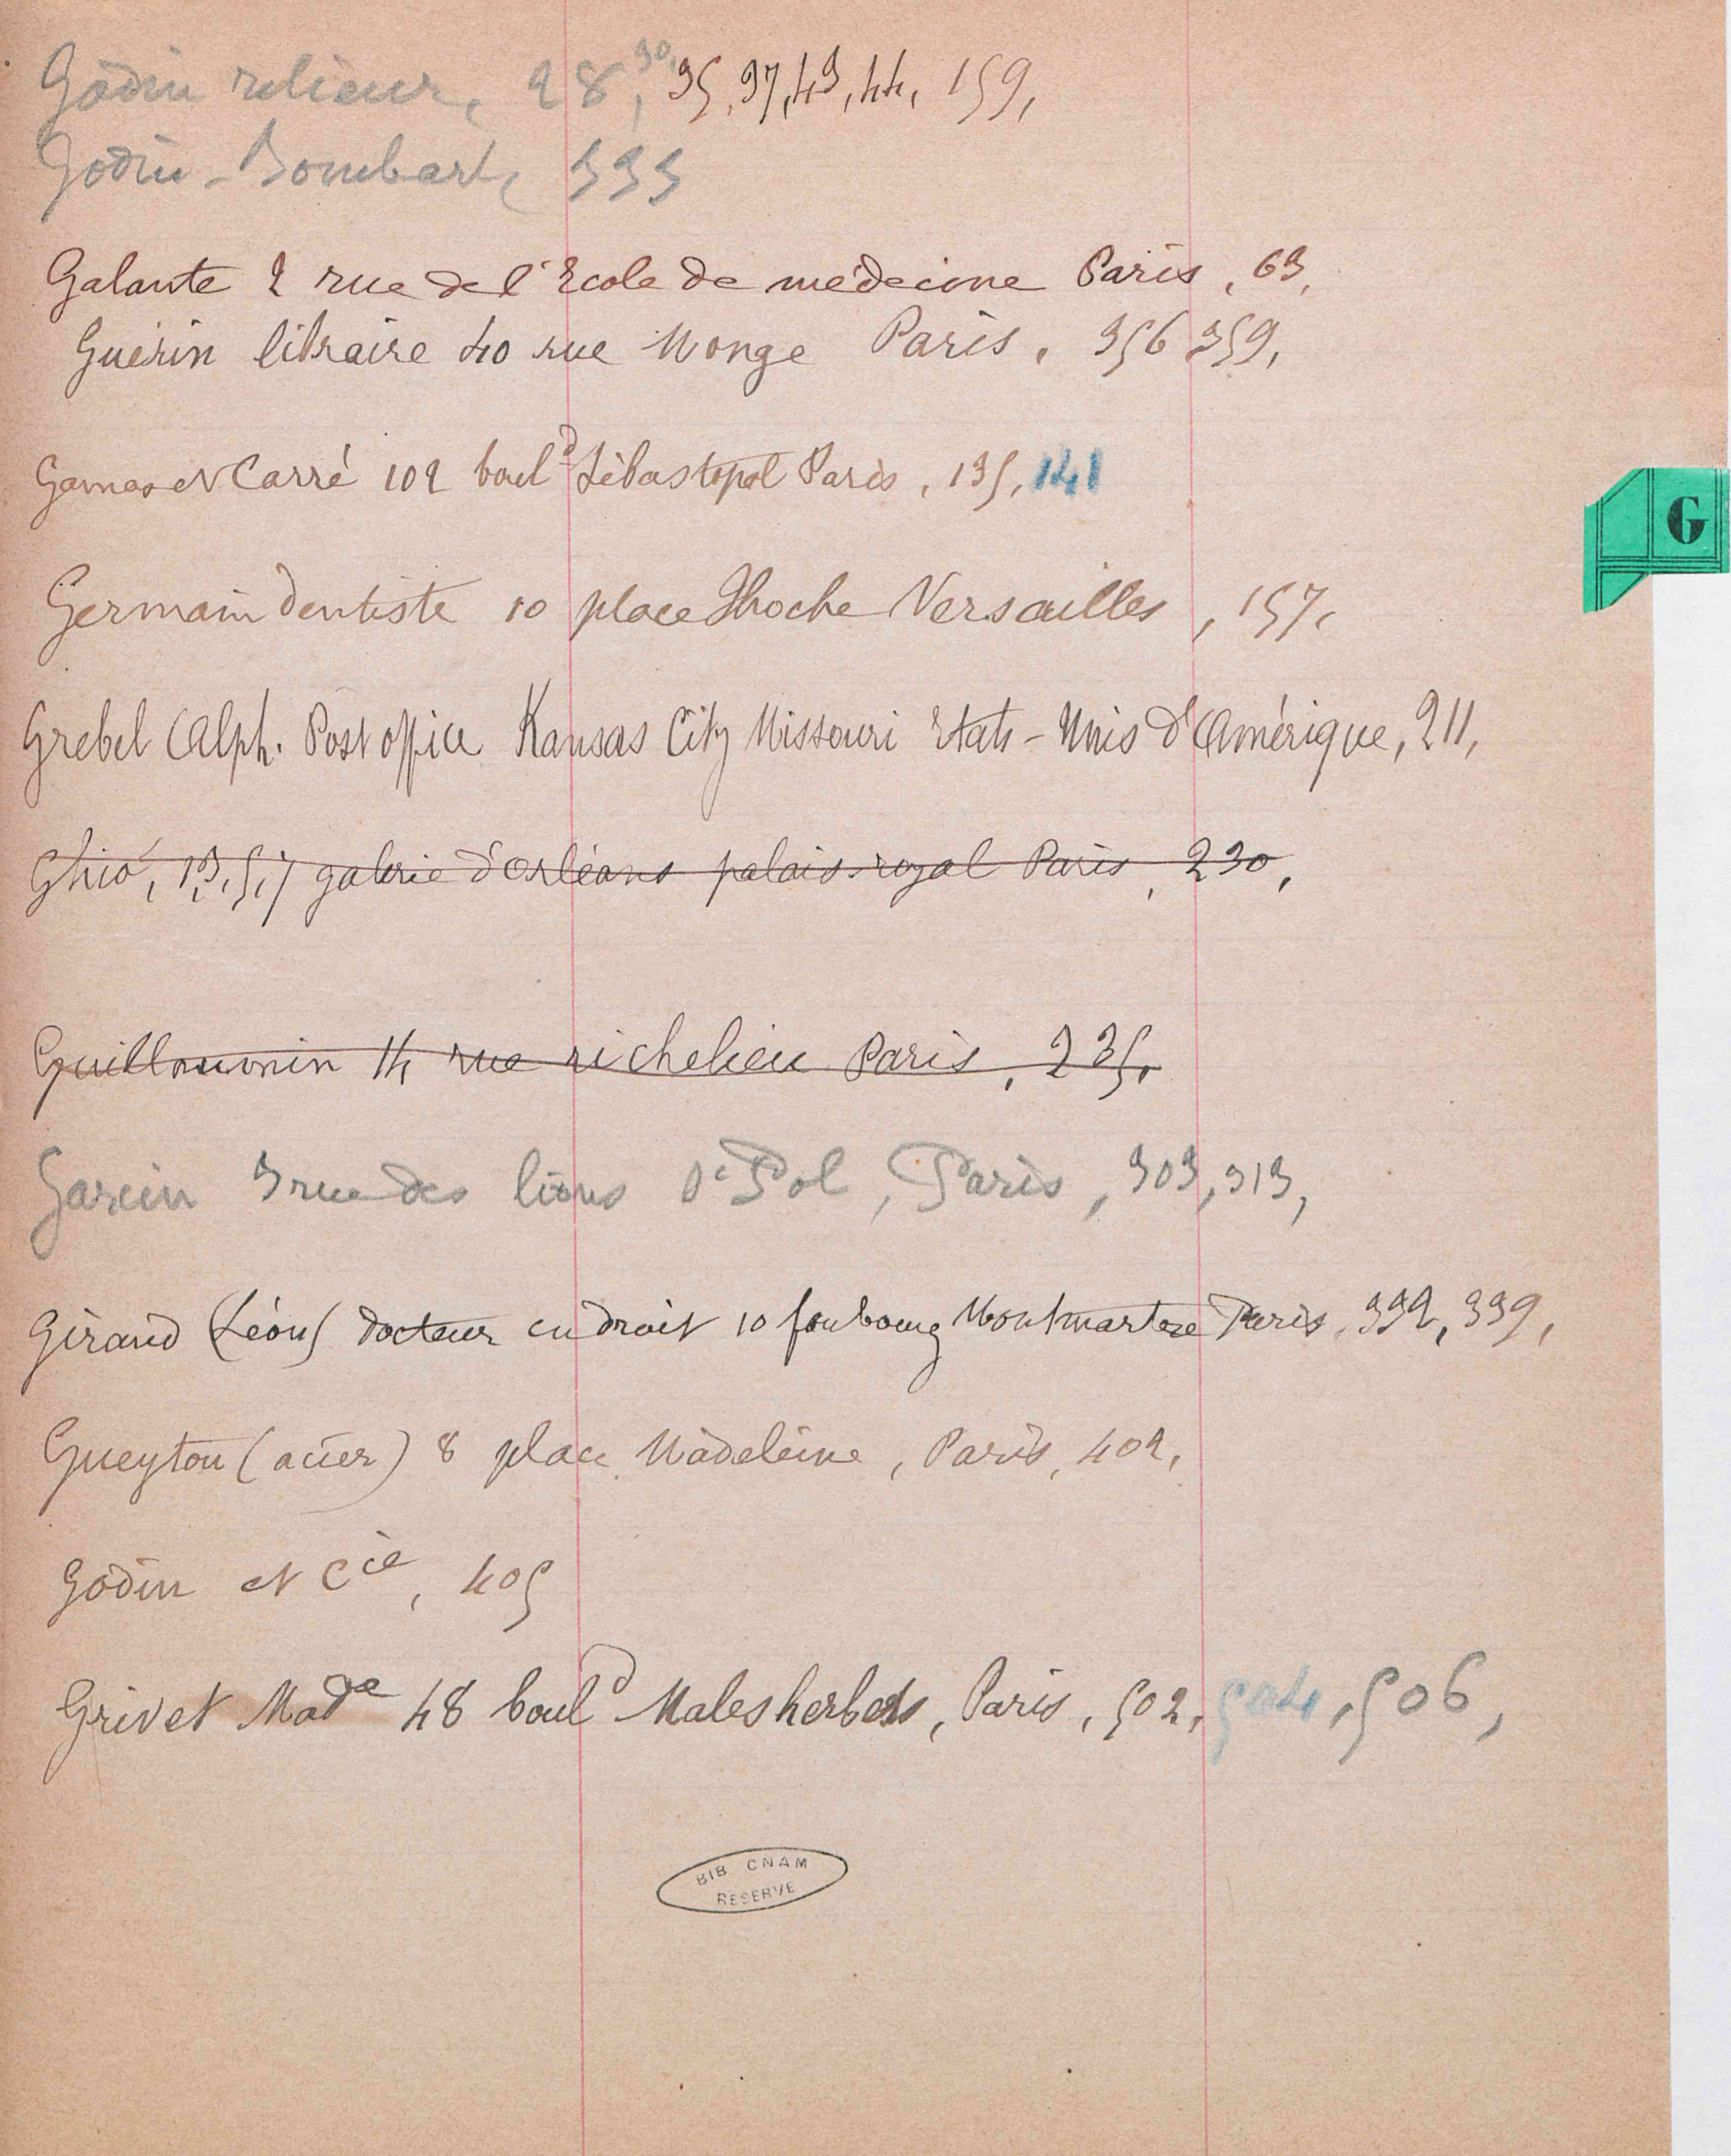 Godin relieur, 28, 30, 35, 37, 43, 44, 159,
Godin-Bombart, 333
Galante 2 rue de l'Ecole de médecine Paris, 63,
Guérin libraire 40 rue Monge Paris, 356 359,
et Carré 102 boul^d Sébastopol Paris, 135, 141
G
Germain dentiste 10 place Hoche Versailles, 157,
Grebel Alph. Post office Kansas City Missouri Etats-Unis d'Amérique, 211,
Ghio, 1,3,5,7 galerie d'orléans palais-royal Paris, 230,
Guillaumin 14 rue richelieu Paris, 235,
Garcin 3 rue des lions St Pol, Paris, 303, 313,
Giraud (Léon) docteur en droit 10 foubourg Montmartre Paris, 332, 339,
Gueyton (acier) 8 place Madeleine, Paris, 402,
Godin et Cie, 405
Grivet Made 48 boul^d Malesherbes, Paris, 502, 504, 506,
BIB CNAM
RESERVE